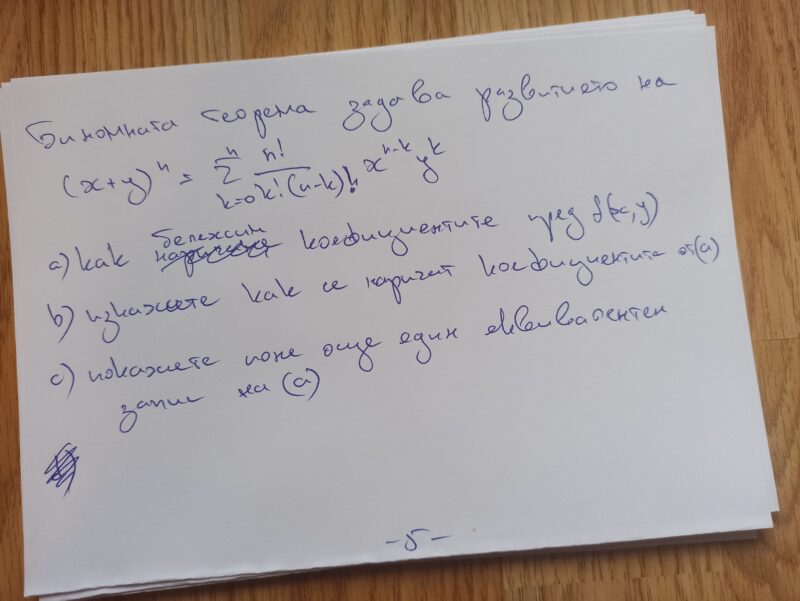 Биномната теорема задава развитието на
(x+y)^n = Σ_{k=0}^{n} n!/(k!(n-k)!) x^{n-k} y^k
a) как бележим коефициентите пред f(x,y)
b) изкажете как се наричат коефициентите от (a)
c) покажете поне още един еквивалентен
запис на (a)
-5-